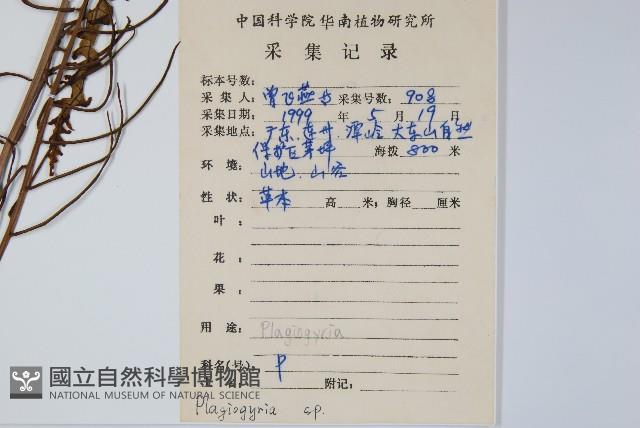 中国科学院华南植物研究所
采集记录
标本号数:
采集人: 曾飞燕 采集号数: 908
采集日期: 1999 年 5 月 19 日
采集地点: 广东.连州.潭岭大东山自然
保护区草坪 海拨 800 米
环境: 山地.山谷
性状: 草本 高 米; 胸径 厘米
叶:
花:
果:
用途: Plagiogyria
科名(号): P
附记:
Plagiogyria sp.
國立自然科學博物館
NATIONAL MUSEUM OF NATURAL SCIENCE